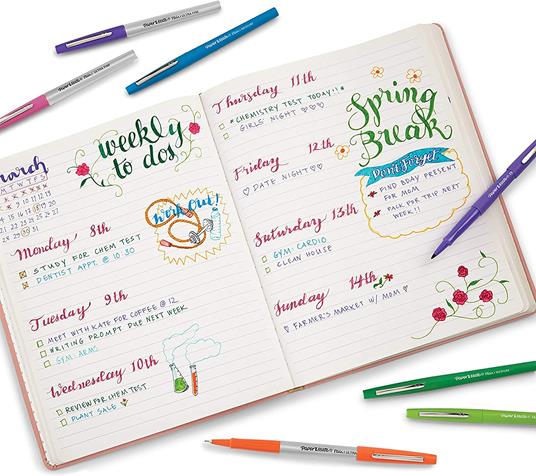 Paper Mate Flair ULTRA FINE
Paper Mate Flair MEDIUM
Paper Mate Flair ULTRA FINE
weekly
to dos
march
Monday 8th
STUDY FOR CHEM TEST
DENTIST APPT. @ 10:30
Work Out!
Tuesday 9th
MEET WITH KATE FOR COFFEE @ 12
WRITING PROMPT DUE NEXT WEEK
GYM: ARMS
Wednesday 10th
REVIEW FOR CHEM TEST
PLANT SALE
Thursday 11th
*CHEMISTRY TEST TODAY!!*
GIRLS NIGHT ♡♡♡
Friday 12th
♡ DATE NIGHT ♡♡
Saturday 13th
GYM: CARDIO
CLEAN HOUSE
Sunday 14th
♡ FARMER'S MARKET W/ MOM ♡
Spring
Break
Don't Forget
* FIND BDAY PRESENT
FOR MOM
* PACK FOR TRIP NEXT
WEEK!!
Paper Mate Flair MEDIUM
Paper Mate Flair
Paper Mate Flair